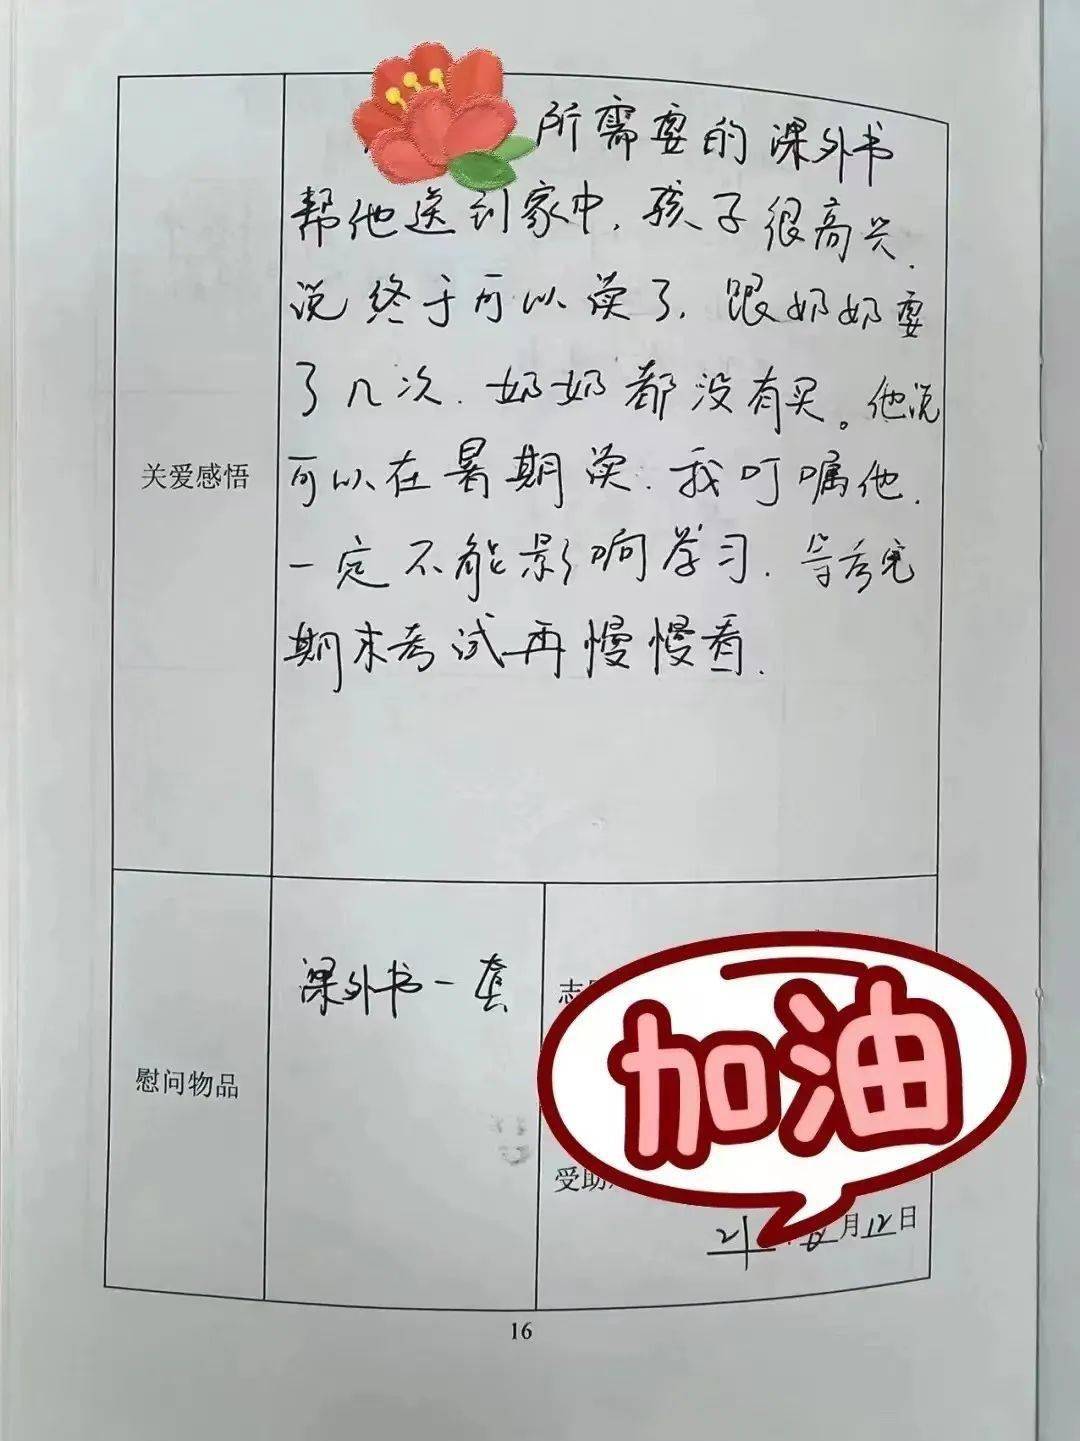 所需要的课外书
帮他送到家中,孩子很高兴,
说终于可以读了,跟奶奶要
了几次,奶奶都没有买。他说
可以在暑期读,我叮嘱他,
一定不能影响学习,等考完
期末考试再慢慢看.
关爱感悟
课外书一套
慰问物品
志
加油
受助
21 月12日
16